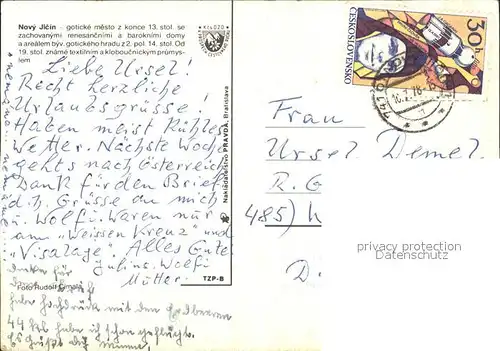 Nový Jičín – gotické město z konce 13. stol. se
zachovanými renesančními a barokními domy
a areálem býv. gotického hradu z 2. pol. 14. stol. Od
19. stol. známé textilním a kloboučnickým průmys-
lem
Liebe Ursel!
Recht herzliche
Urlaubsgrüsse!
Haben meist kühles
Wetter. Nächste Woche
gehts nach Österreich
Dank für den Brief
d. h. Grüsse an mich
u. Wolfi. Waren nur
am "Weissen Kreuz" und
"Visalaje" Alles Gute
Julius. Wolfi
Mutter.
Foto Rudolf
danke für
habe Hochdruck mit den Erdbeeren
44 habe ich schon gepflückt.
Nakladatelstvo PRAVDA, Bratislava
TZP-B
ČESKOSLOVENSKO
30 h
Frau
Ursel Demel
R. G
485) W
D.
privacy protection
Datenschutz